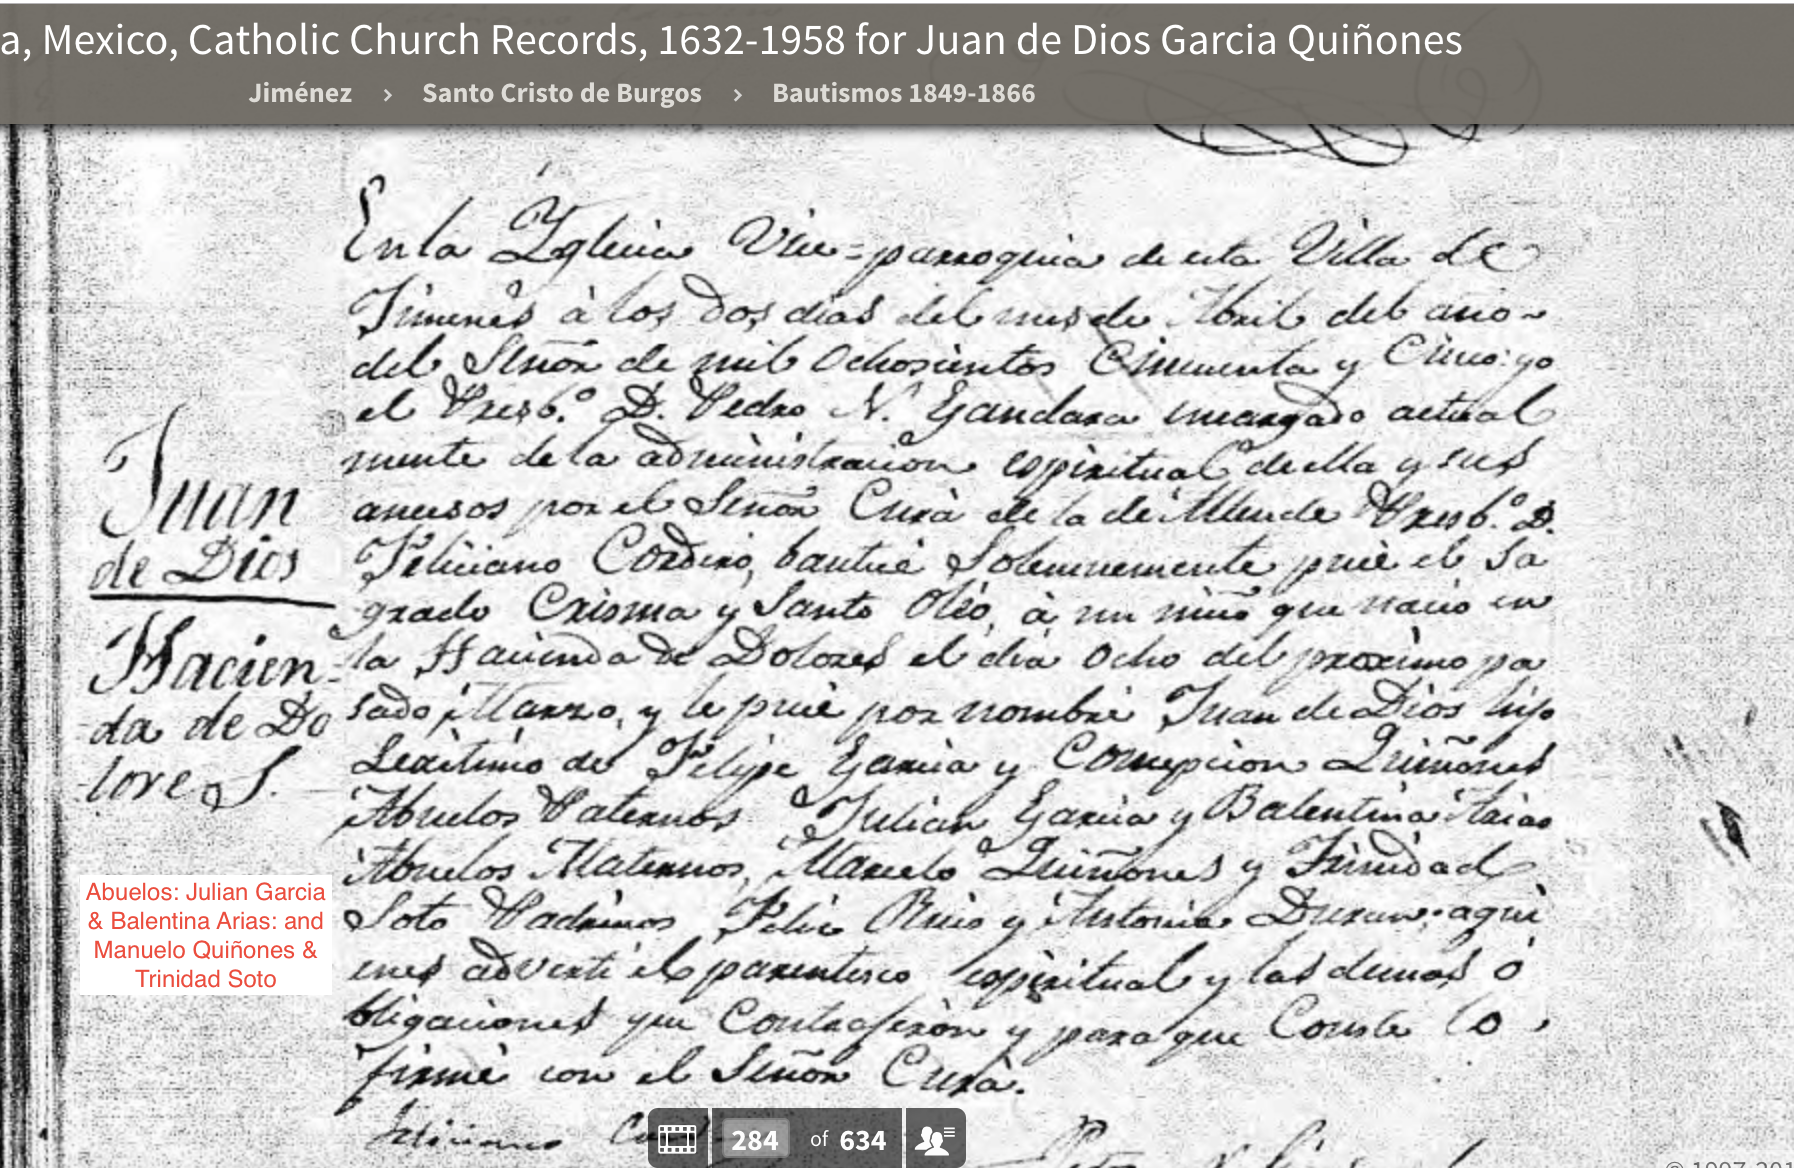 a, Mexico, Catholic Church Records, 1632-1958 for Juan de Dios Garcia Quiñones
Jiménez › Santo Cristo de Burgos › Bautismos 1849-1866
En la Yglecia Vice=parroquia de esta Villa de
Jimenes à los dos dias del mes de Abril del año
del Señor de mil ochosientos Cincuenta y Cinco: yo
el Presb.º D. Pedro N. Gandara encargado actual
mente de la administracion espiritual de ella y sus
anecsos por el Señor Cura de la de Allende Presb.º D.
Feliciano Cordero, bauticé Solemnemente puse el Sa
grado Crisma y Santo Oleo, à un niño que nacio en
la Hacienda de Dolores el dia ocho del procsimo pa
sado Marzo, y le puse por nombre Juan de Dios hijo
Lexitimo de Felipe Garcia y Concepcion Quiñones
Abuelos Paternos Julian Garcia y Balentina Arias
Abuelos Maternos, Marcelo Quiñones y Trinidad
Soto Padrinos Felix y Antonia Duran: a qui
enes adverti el parentesco espiritual y las demas o
bligaciones que Contrageron y para que Conste lo
firmé con el Señor Cura.
Feliciano
Juan
de Dios
Hacien-
da de Do
lores.
Abuelos: Julian Garcia
& Balentina Arias: and
Manuelo Quiñones &
Trinidad Soto
284 of 634